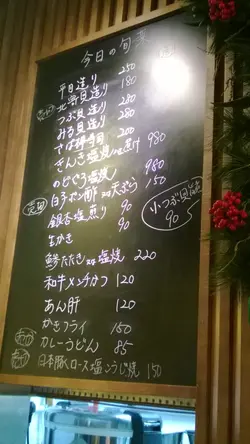 今日の旬菜
平目造り 250
北寄貝造り 180
つぶ貝造り 280
みる貝造り 280
さば 200
きんき塩焼 or 煮付 980
のどぐろ塩焼 980
白子ポン酢 or 天ぷら 150
銀杏塩煎り 90
生かき 90
鯵たたき or 塩焼 220
小つぶ貝
90
和牛メンチかつ 120
あん肝 120
かきフライ 150
カレーうどん 85
日本豚ロース塩こうじ焼 150